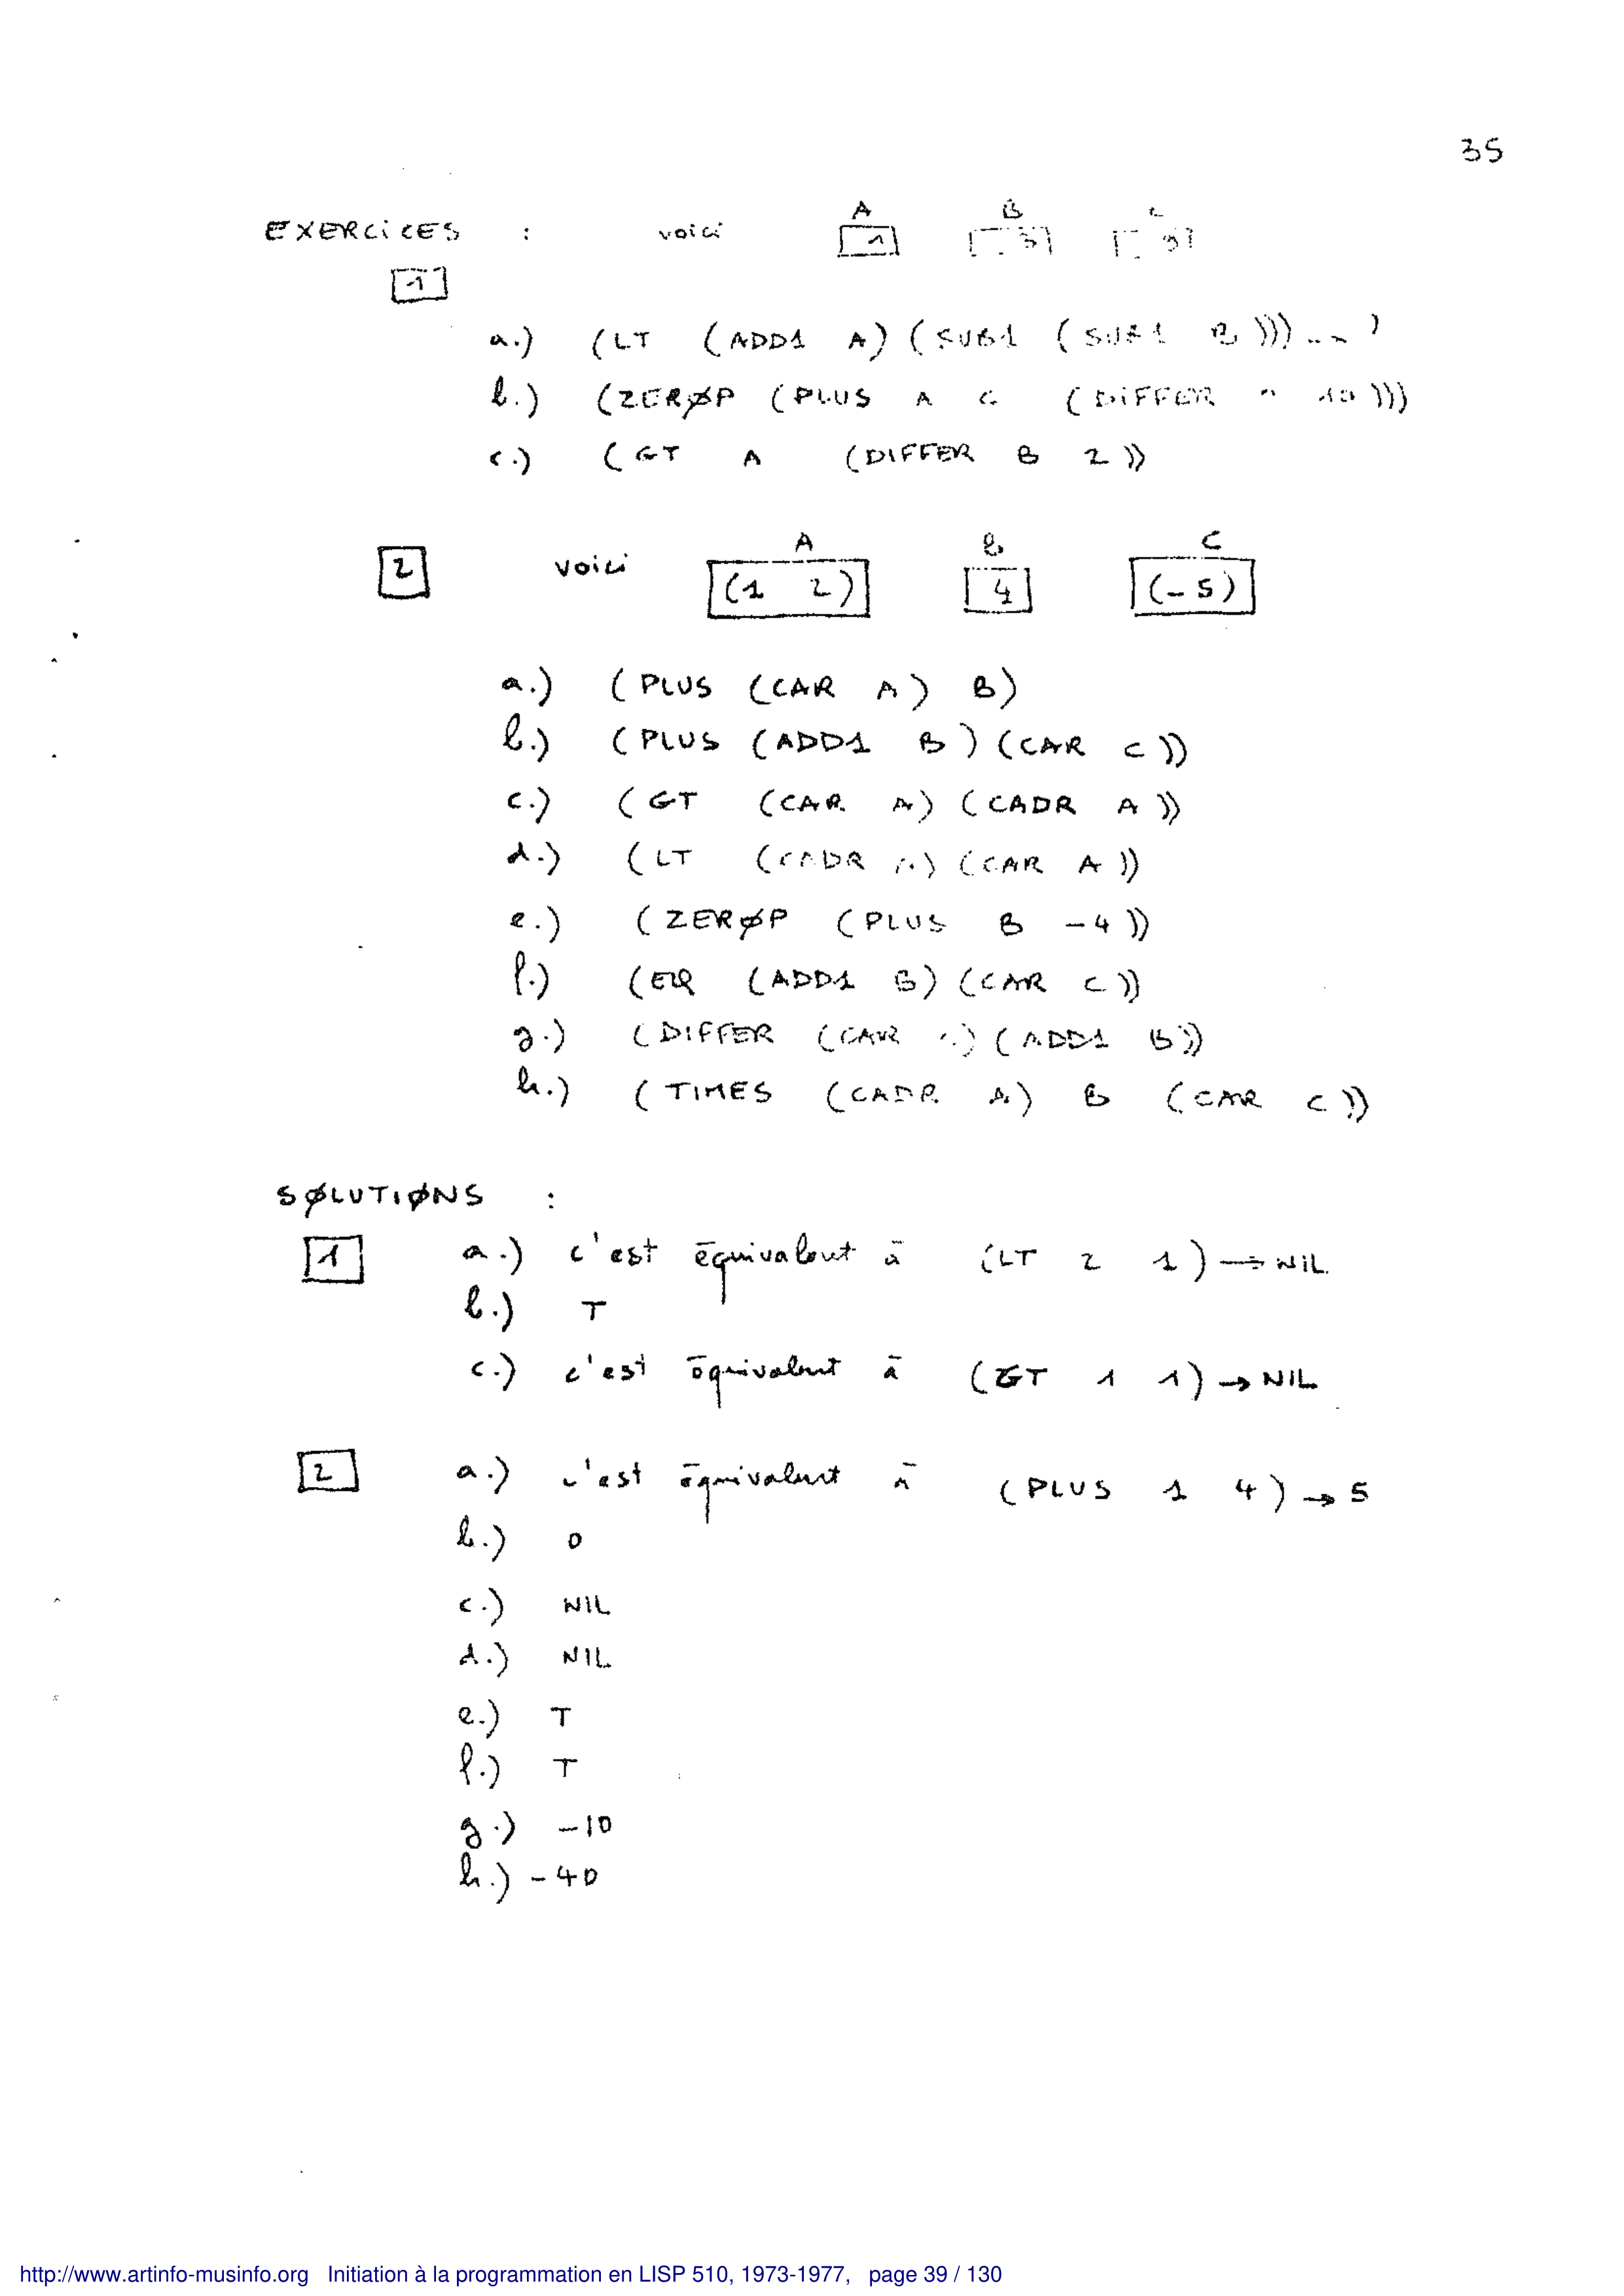 35
EXERCICES : voici A B C
1 3 9
1
a.) (LT (ADD1 A) (SUB1 (SUB1 B)))
b.) (ZERØP (PLUS A C (DIFFER 10)))
c.) (GT A (DIFFER B 2))
A B C
2 voici (1 2) 4 (-5)
a.) (PLUS (CAR A) B)
b.) (PLUS (ADD1 B) (CAR C))
c.) (GT (CAR A) (CADR A))
d.) (LT (CADR A) (CAR A))
e.) (ZERØP (PLUS B -4))
f.) (EQ (ADD1 B) (CAR C))
g.) (DIFFER (CAR ) (ADD1 B))
h.) (TIMES (CADR A) B (CAR C))
SØLUTIØNS :
1 a.) c'est équivalent à (LT 2 1) → NIL
b.) T
c.) c'est équivalent à (GT 1 1) → NIL
2 a.) c'est équivalent à (PLUS 1 4) → 5
b.) 0
c.) NIL
d.) NIL
e.) T
f.) T
g.) -10
h.) -40
http://www.artinfo-musinfo.org Initiation à la programmation en LISP 510, 1973-1977, page 39 / 130